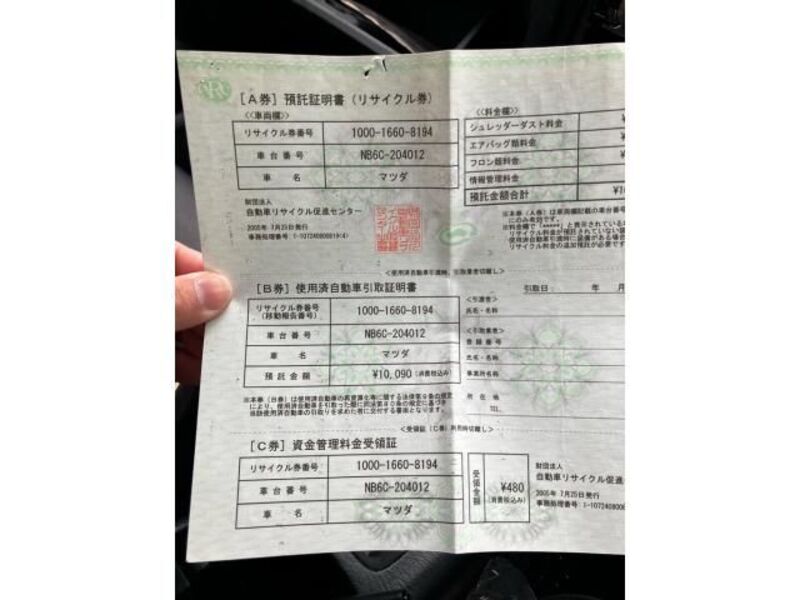 [A券] 預託証明書 (リサイクル券)
<<車両欄>>
リサイクル券番号 1000-1660-8194
車台番号 NB6C-204012
車 名 マツダ
<<料金欄>>
シュレッダーダスト料金
エアバッグ類料金
フロン類料金
情報管理料金
預託金額合計
財団法人
自動車リサイクル促進センター
2005年 7月25日発行
※本券(A券)は車両欄記載の車台番号
にのみ有効です。
<使用済自動車引渡時、引取業者切離し>
[B券] 使用済自動車引取証明書
引取日: 年 月
リサイクル券番号
(移動報告番号) 1000-1660-8194
車台番号 NB6C-204012
車 名 マツダ
預託金額 ¥10,090 (消費税込み)
<引渡者>
氏名・名称
<引取業者>
登録番号
氏名・名称
事業所名称
所在地
TEL.
※本券(B券)は使用済自動車の再資源化等に関する法律第80条の規定
<受領証(C券)利用時切離し>
[C券] 資金管理料金受領証
リサイクル券番号 1000-1660-8194
車台番号 NB6C-204012
車 名 マツダ
受領金額 ¥480
(消費税込み)
財団法人
自動車リサイクル促進
2005年 7月25日発行